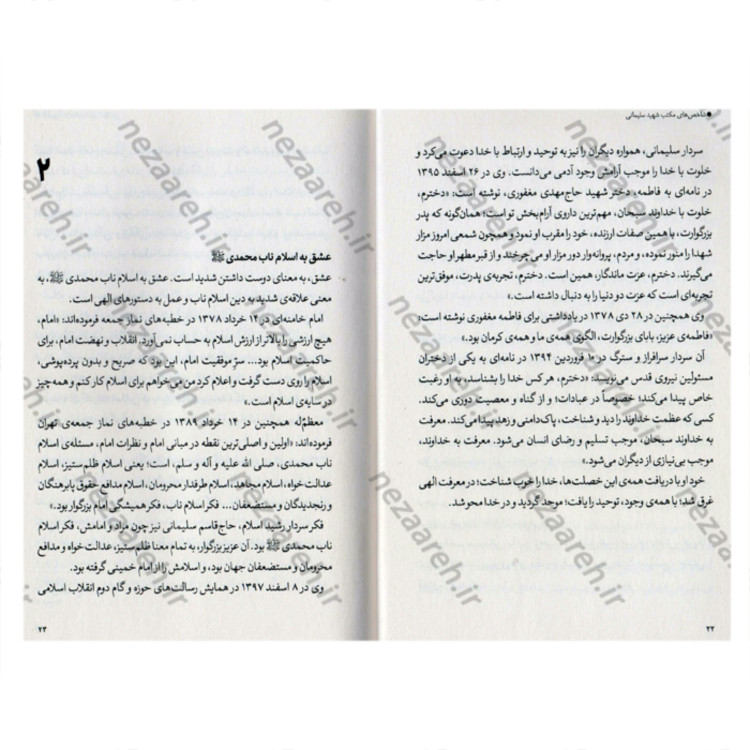 شاخص‌های مکتب شهید سلیمانی
سردار سلیمانی، همواره دیگران را نیز به توحید و ارتباط با خدا دعوت می‌کرد و
خلوت با خدا را موجب آرامش وجود آدمی می‌دانست. وی در ۲۶ اسفند ۱۳۹۵
در نامه‌ای به فاطمه، دختر شهید حاج‌مهدی مغفوری، نوشته است: «دخترم،
خلوت با خداوند سبحان، مهم‌ترین داروی آرام‌بخش تو است؛ همان‌گونه که پدر
بزرگوارت، با همین صفات ارزنده، خود را مقرب او نمود و همچون شمعی امروز مزار
شهدا را منور نموده، و مردم، پروانه‌وار دور مزار او می‌چرخند و از قبر مطهر او حاجت
می‌گیرند. دخترم، عزت ماندگار، همین است. دخترم، تجربه‌ی پدرت، موفق‌ترین
تجربه‌ای است که عزت دو دنیا را به دنبال داشته است.»
وی همچنین در ۲۸ دی ۱۳۷۸ در یادداشتی برای فاطمه مغفوری نوشته است:
«فاطمه‌ی عزیز، بابای بزرگوارت، الگوی همه‌ی ما و همه‌ی کرمان بود.»
آن سردار سرافراز و سترگ در ۱۰ فروردین ۱۳۹۴ در نامه‌ای به یکی از دختران
مسئولین نیروی قدس می‌نویسد: «دخترم، هر کس خدا را بشناسد، به او رغبت
خاص پیدا می‌کند؛ خصوصاً در عبادات؛ و از گناه و معصیت دوری می‌کند.
کسی که عظمت خداوند را دید و شناخت، پاک‌دامنی و زهد پیدا می‌کند. معرفت
به خداوند سبحان، موجب تسلیم و رضای انسان می‌شود. معرفت به خداوند،
موجب بی‌نیازی از دیگران می‌شود.»
خود او با دریافت همه‌ی این خصلت‌ها، خدا را خوب شناخت؛ در معرفت الهی
غرق شد؛ با همه‌ی وجود، توحید را یافت؛ موحد گردید و در خدا محو شد.
۲۲
۲
عشق به اسلام ناب محمدی ﷺ
عشق، به معنای دوست داشتن شدید است. عشق به اسلام ناب محمدی ﷺ، به
معنی علاقه‌ی شدید به دین اسلام ناب و عمل به دستورهای الهی است.
امام خامنه‌ای در ۱۴ خرداد ۱۳۷۸ در خطبه‌های نماز جمعه فرموده‌اند: «امام،
هیچ ارزشی را بالاتر از ارزش اسلام به حساب نمی‌آورد. انقلاب و نهضت امام، برای
حاکمیت اسلام بود... سرّ موفقیت امام، این بود که صریح و بدون پرده‌پوشی،
اسلام را روی دست گرفت و اعلام کرد من می‌خواهم برای اسلام کار کنم و همه‌چیز
در سایه‌ی اسلام است.»
معظم‌له همچنین در ۱۴ خرداد ۱۳۸۹ در خطبه‌های نماز جمعه‌ی تهران
فرموده‌اند: «اولین و اصلی‌ترین نقطه در مبانی امام و نظرات امام، مسئله‌ی اسلام
ناب محمدی، صلی الله علیه و آله و سلم، است؛ یعنی اسلام ظلم‌ستیز، اسلام
عدالت خواه، اسلام مجاهد، اسلام طرفدار محرومان، اسلام مدافع حقوق پابرهنگان
و رنجدیدگان و مستضعفان... فکر اسلام ناب، فکر همیشگی امام بزرگوار بود.»
فکر سردار رشید اسلام، حاج‌قاسم سلیمانی نیز چون مراد و امامش، فکر اسلام
ناب محمدی ﷺ بود. آن عزیز بزرگوار، به تمام معنا ظلم‌ستیز، عدالت خواه و مدافع
محرومان و مستضعفان جهان بود، و اسلامش را از امام خمینی گرفته بود.
وی در ۸ اسفند ۱۳۹۷ در همایش رسالت‌های حوزه و گام دوم انقلاب اسلامی
۲۳
nezaareh.ir